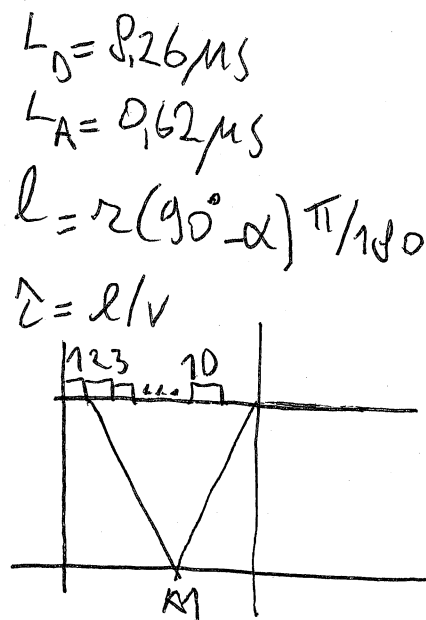 L_D = 8,26 μs
L_A = 0,62 μs
l = r(90° - α) π/180
τ = l/v
1 2 3 .... 10